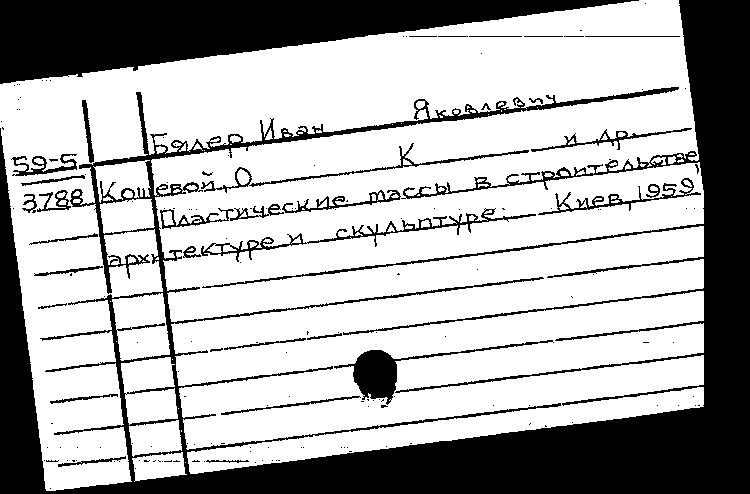 Бялер, Иван Яковлевич
59-5
3788 Кошевой, О К и др.
Пластические массы в строительстве,
архитектуре и скульптуре. Киев, 1959